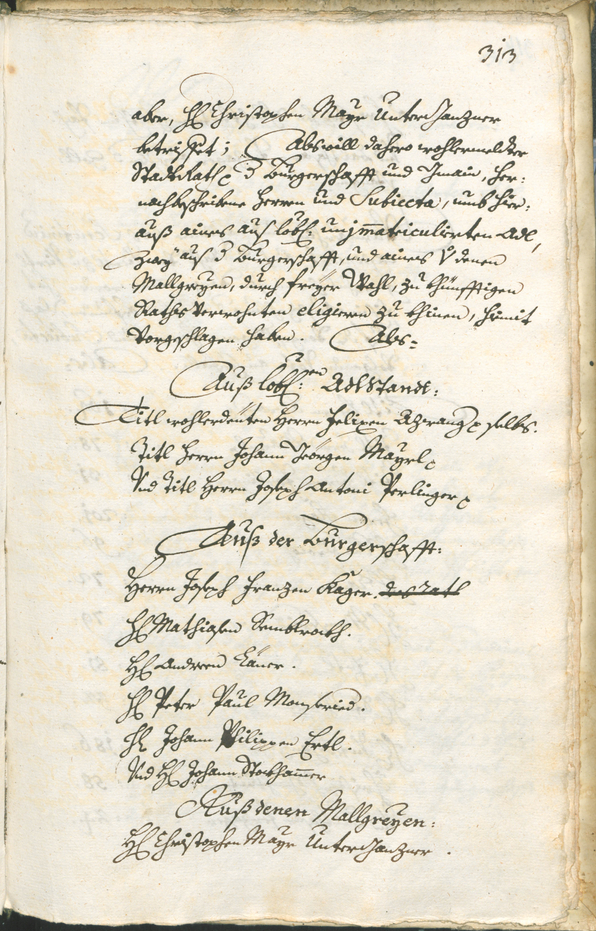 313
aber, H: Christophen Mayr Unterdanzner
betriffet; Als will dahero wohlermelter
StadtRath, d Burgerschafft und Gmain, her:
nachbeschribene Herren und Subiecta, umb hier:
auß aines aus löbl: immatriculirten Adl,
Zwey aus d Burgerschafft, und aines v denen
Mallgreyen, durch freyer Wahl, zu khünfftigen
Raths Verwohnten eligieren zu khinen, hiemit
Vorgeschlagen haben. Als=
Auß löbl:en AdlStandt:
Titl wohlerdeuten Herrn Felixen selbs.
Titl Herrn Johann Geörgen Mayrl
Und Titl Herrn Joseph Antoni Perlinger
Auß der Burgerschafft:
Herrn Joseph Franzen Kager. des Rath
H: Mathiasen
H: Andreen
H: Peter Paul
H: Johann Philippen Ertl.
Und H: Johann Stokhammer
Auß denen Mallgreyen:
H: Christophen Mayr Unterdanzner.